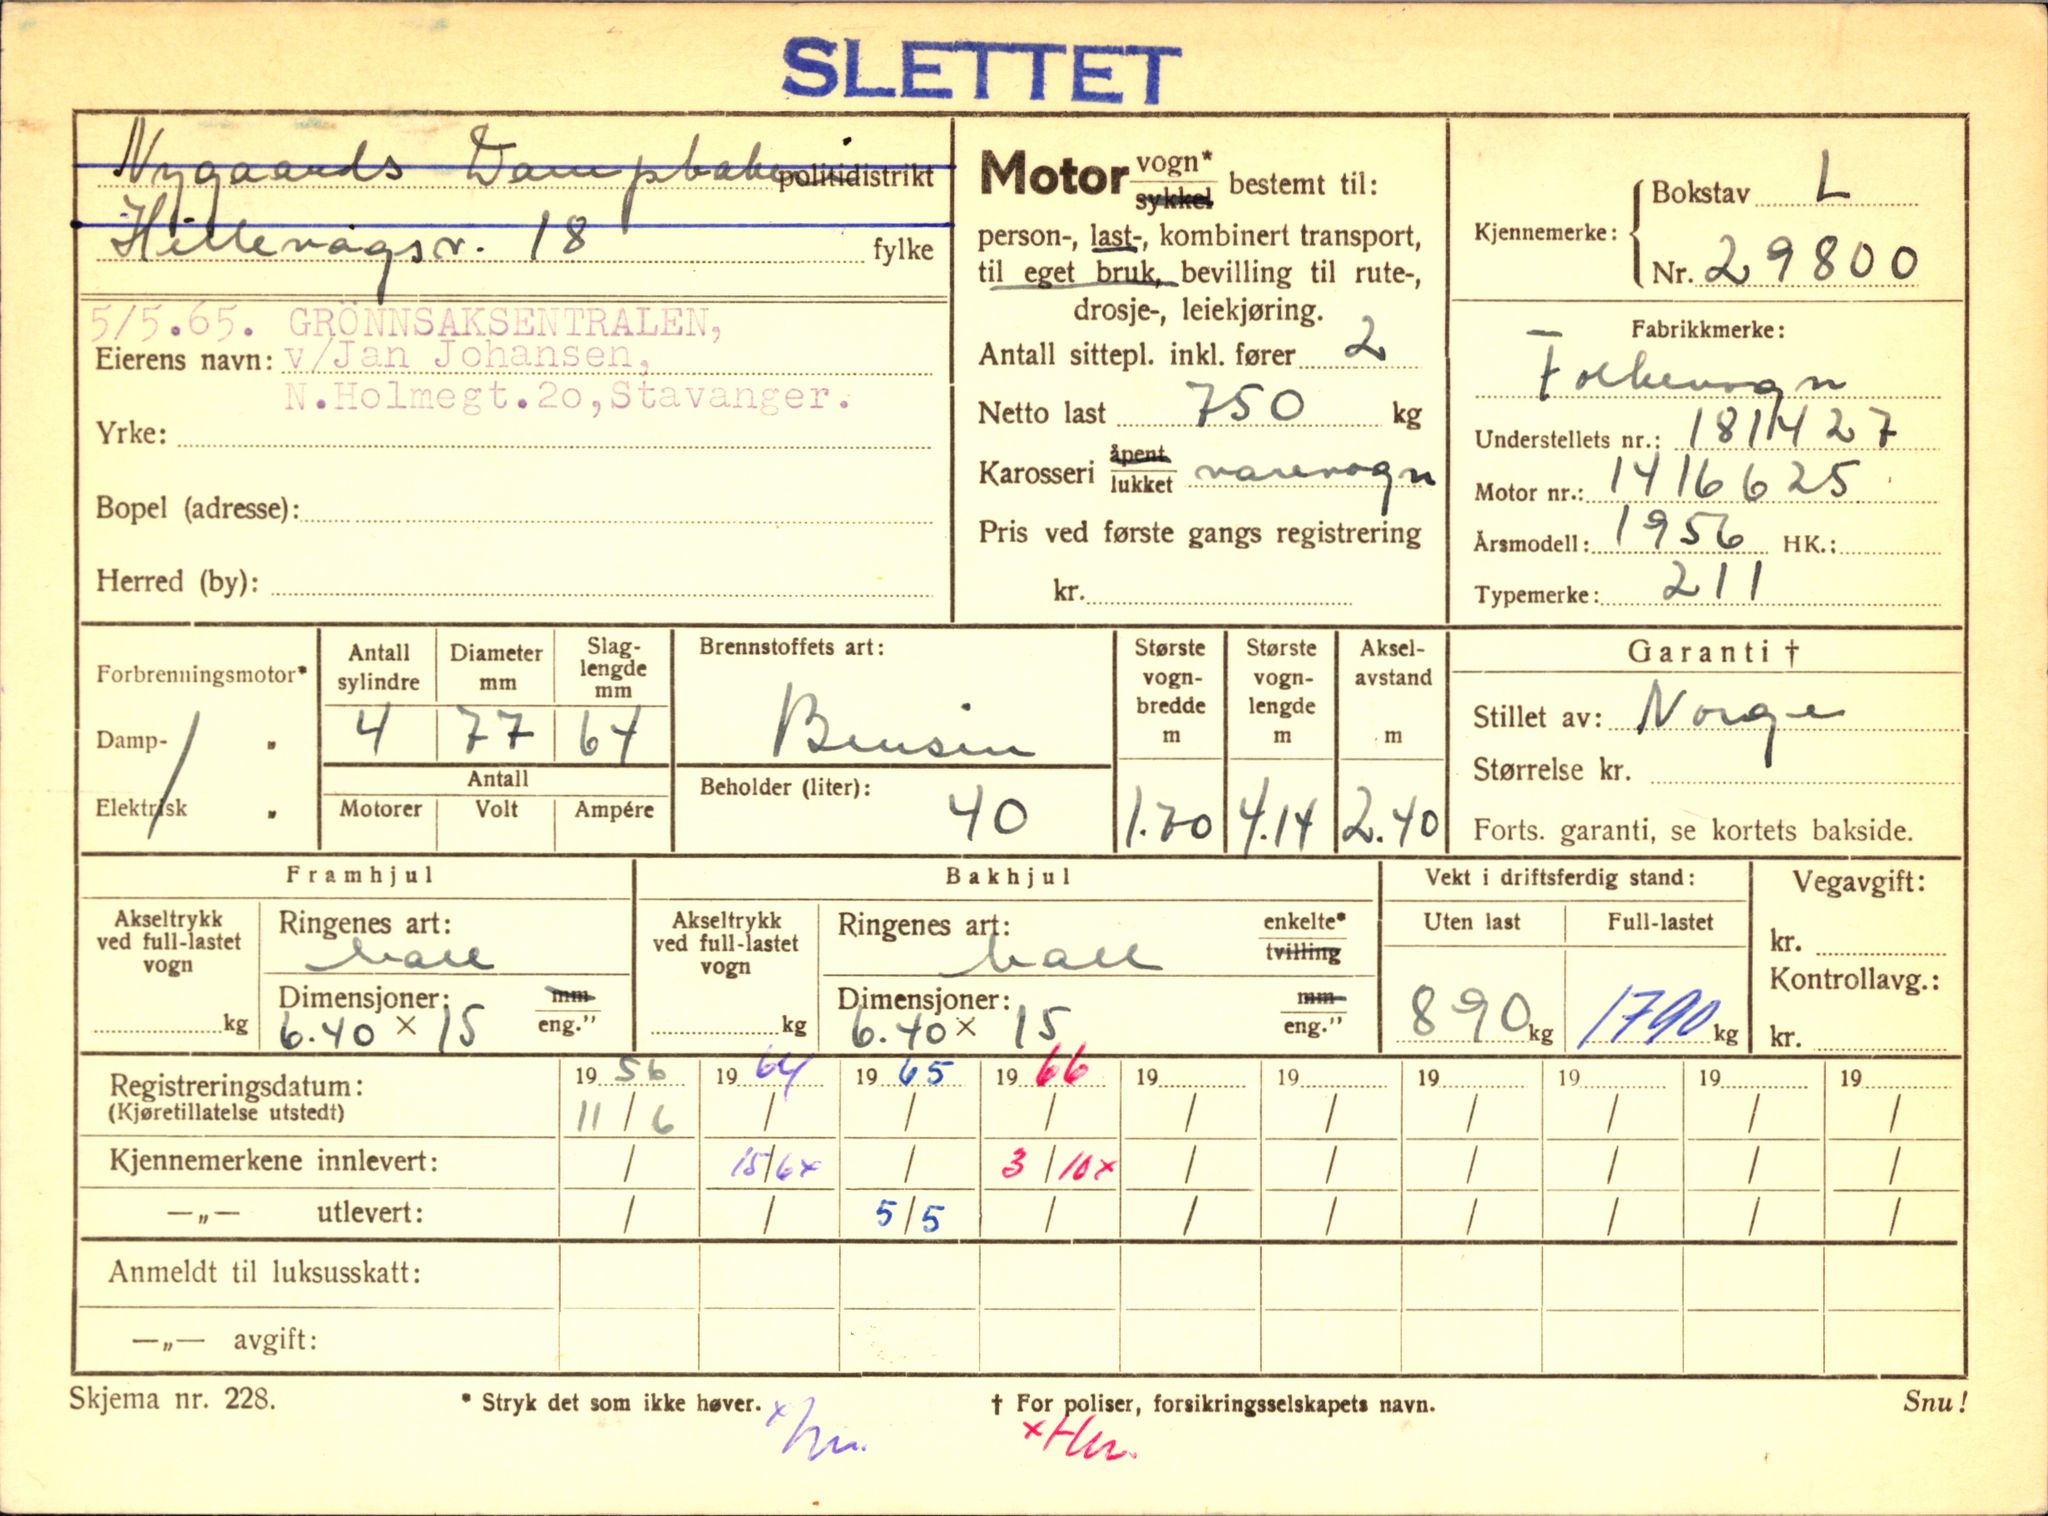 SLETTET
Nygaards Dampbakeri politidistrikt
Hillevågsv. 18 fylke
5/5.65. GRÖNNSAKSENTRALEN,
Eierens navn: v/Jan Johansen,
N.Holmegt.20, Stavanger.
Yrke:
Bopel (adresse):
Herred (by):
Motor vogn* sykkel bestemt til:
person-, last-, kombinert transport,
til eget bruk, bevilling til rute-,
drosje-, leiekjøring.
Antall sittepl. inkl. fører 2
Netto last 750 kg
Karosseri åpent lukket varevogn
Pris ved første gangs registrering
kr.
Kjennemerke: Bokstav L
Nr. 29800
Fabrikkmerke:
Folkevogn
Understellets nr.: 181427
Motor nr.: 1416625
Årsmodell: 1956 HK.:
Typemerke: 211
Forbrenningsmotor*
Damp- „
Elektrisk „
Antall sylindre Diameter mm Slag-lengde mm
4 77 64
Antall
Motorer Volt Ampére
Brennstoffets art:
Bensin
Beholder (liter):
40
Største vogn-bredde m Største vogn-lengde m Aksel-avstand m
1.70 4.14 2.40
Garanti †
Stillet av: Norge
Størrelse kr.
Forts. garanti, se kortets bakside.
Framhjul
Akseltrykk ved full-lastet vogn
kg
Ringenes art:
Dimensjoner: mm eng."
6.40 × 15
Bakhjul
Akseltrykk ved full-lastet vogn
kg
Ringenes art: enkelte* tvilling
Dimensjoner: mm eng."
6.40 × 15
Vekt i driftsferdig stand:
Uten last Full-lastet
890 kg 1790 kg
Vegavgift:
kr.
Kontrollavg.:
kr.
Registreringsdatum: 19 56 19 64 19 65 19 66 19 19 19 19 19 19
(Kjøretillatelse utstedt) 11 / 6 / / / / / / / / /
Kjennemerkene innlevert: / 15/6x / 3 / 10x / / / / / /
—„— utlevert: / / 5/5 / / / / / / /
Anmeldt til luksusskatt:
—„— avgift:
Skjema nr. 228. * Stryk det som ikke høver. † For poliser, forsikringsselskapets navn. Snu!